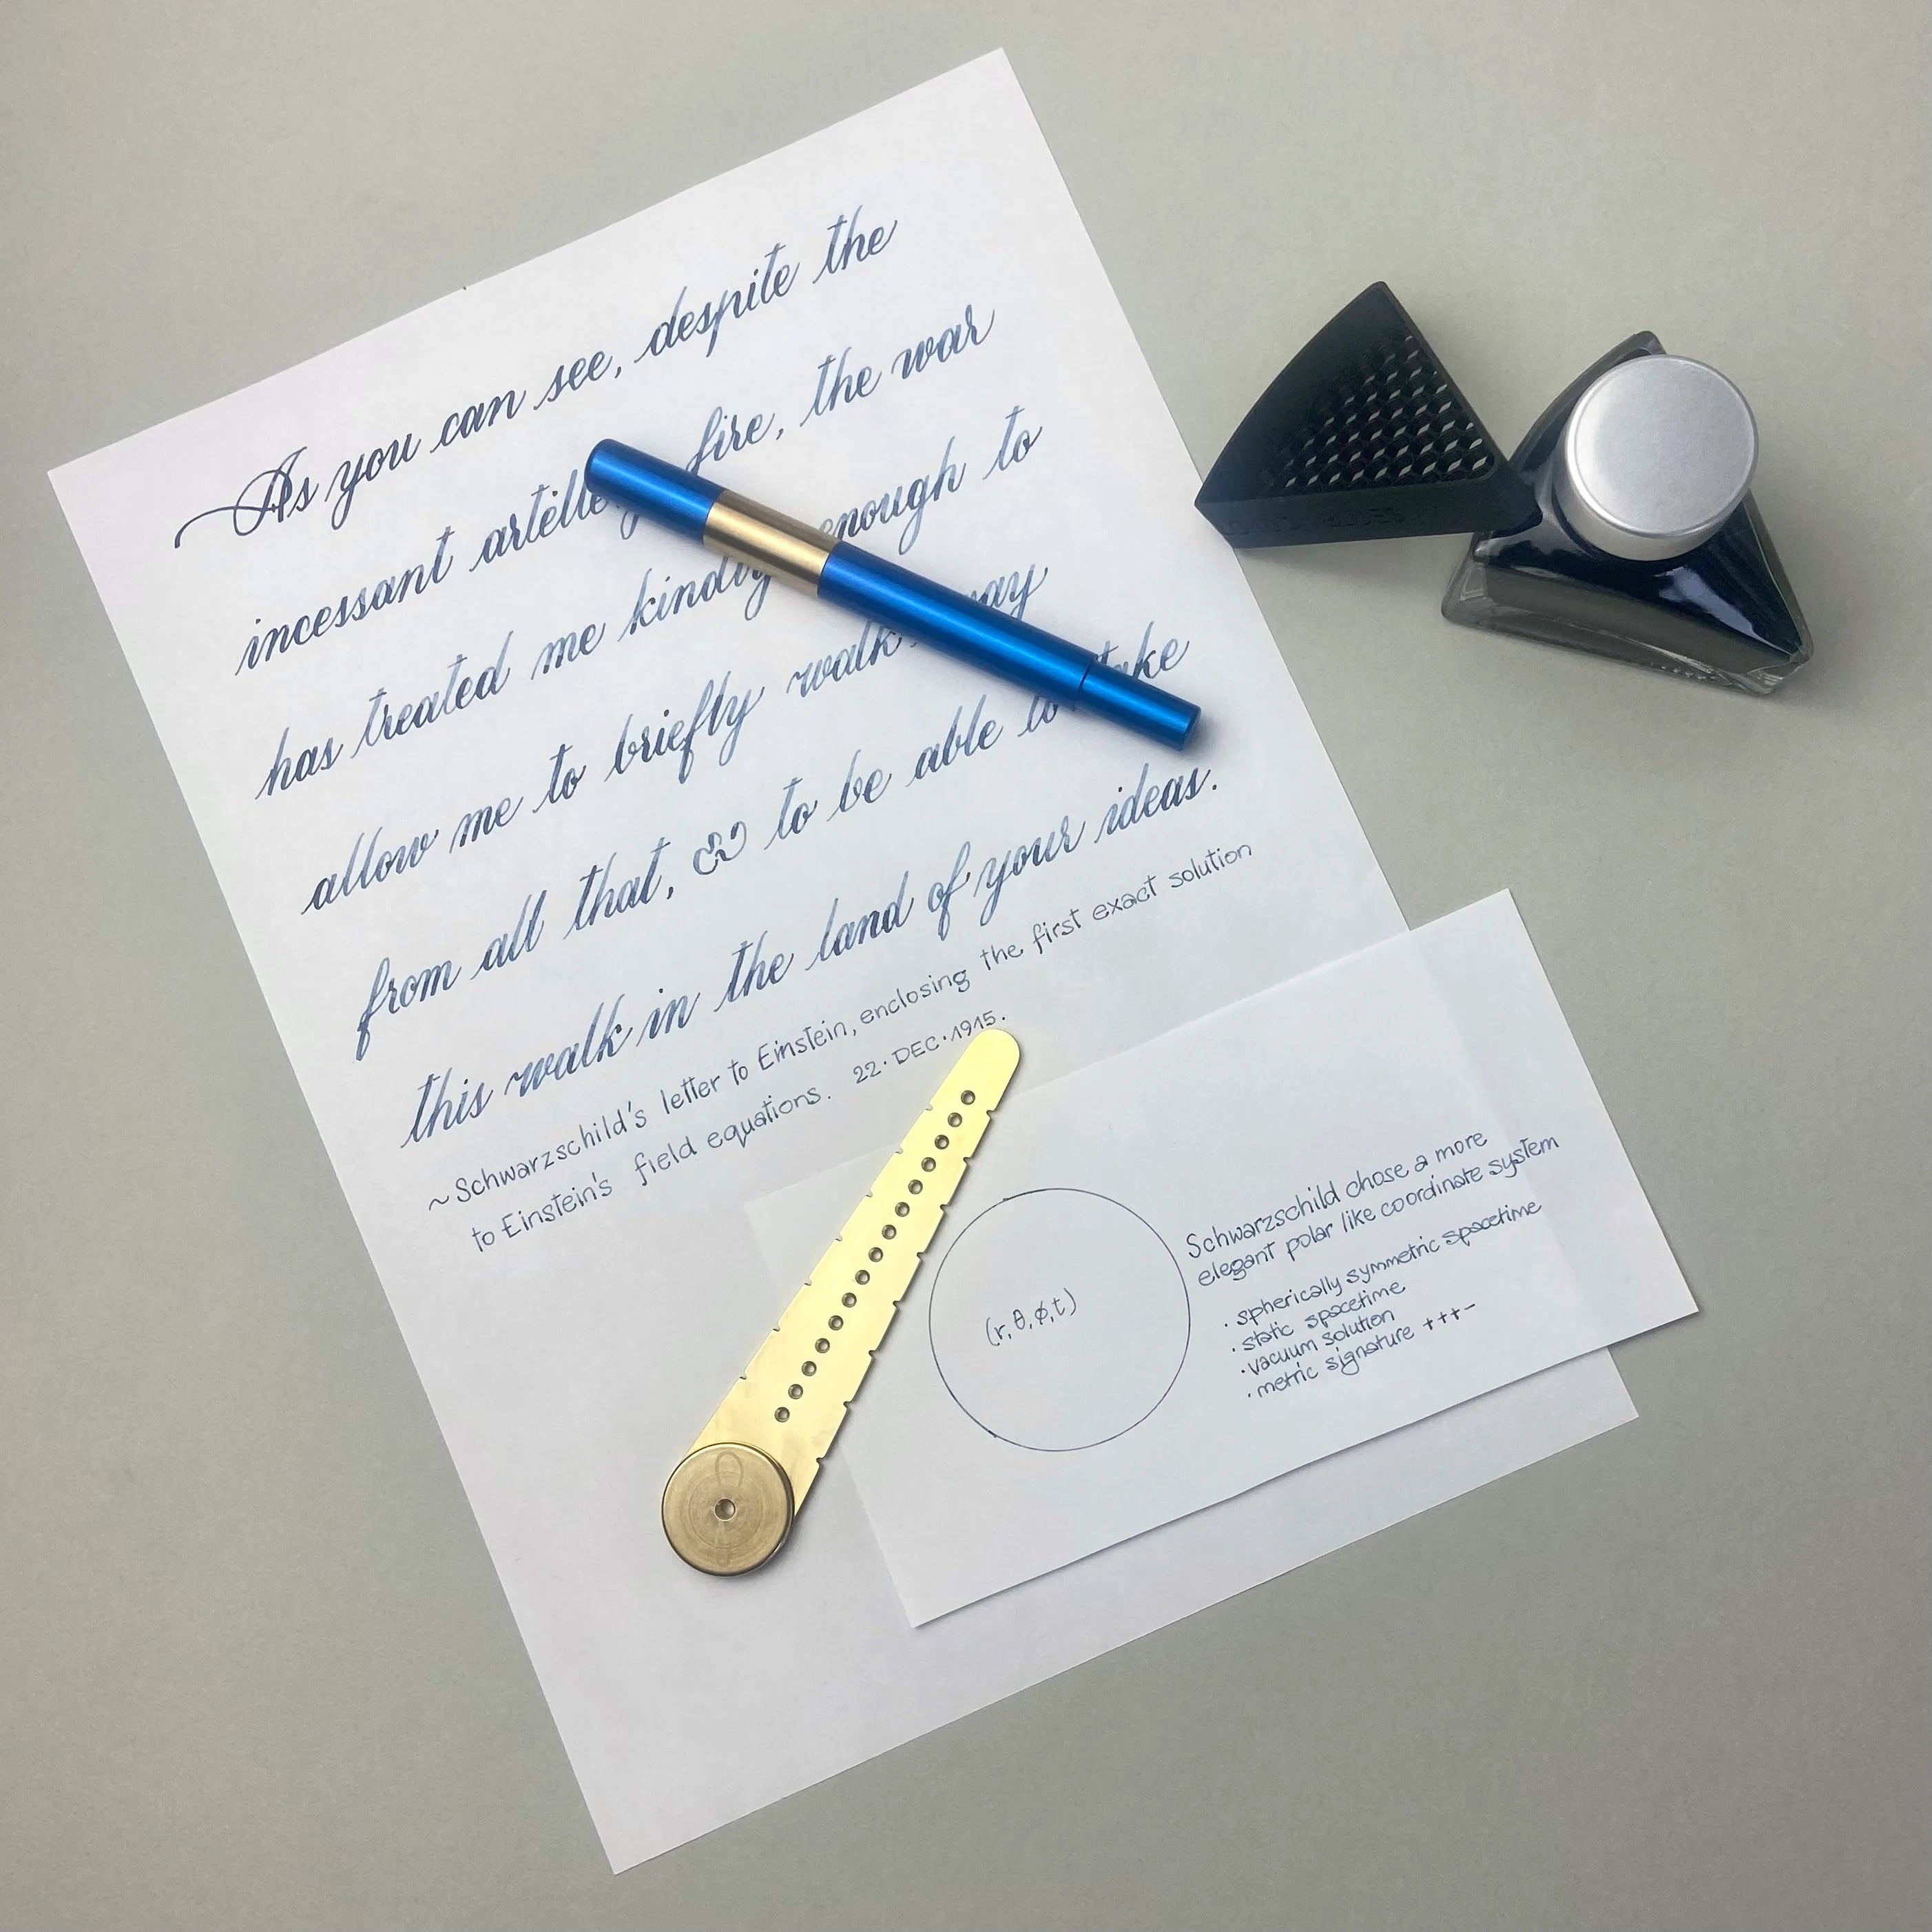 As you can see, despite the
incessant artille fire, the war
has treated me kindly enough to
allow me to briefly walk away
from all that, & to be able to take
this walk in the land of your ideas.
~Schwarzschild's letter to Einstein, enclosing the first exact solution
to Einstein's field equations. 22·DEC·1915.
(r,θ,ϕ,t)
Schwarzschild chose a more
elegant polar like coordinate system
· spherically symmetric spacetime
· static spacetime
· vacuum solution
· metric signature +++-